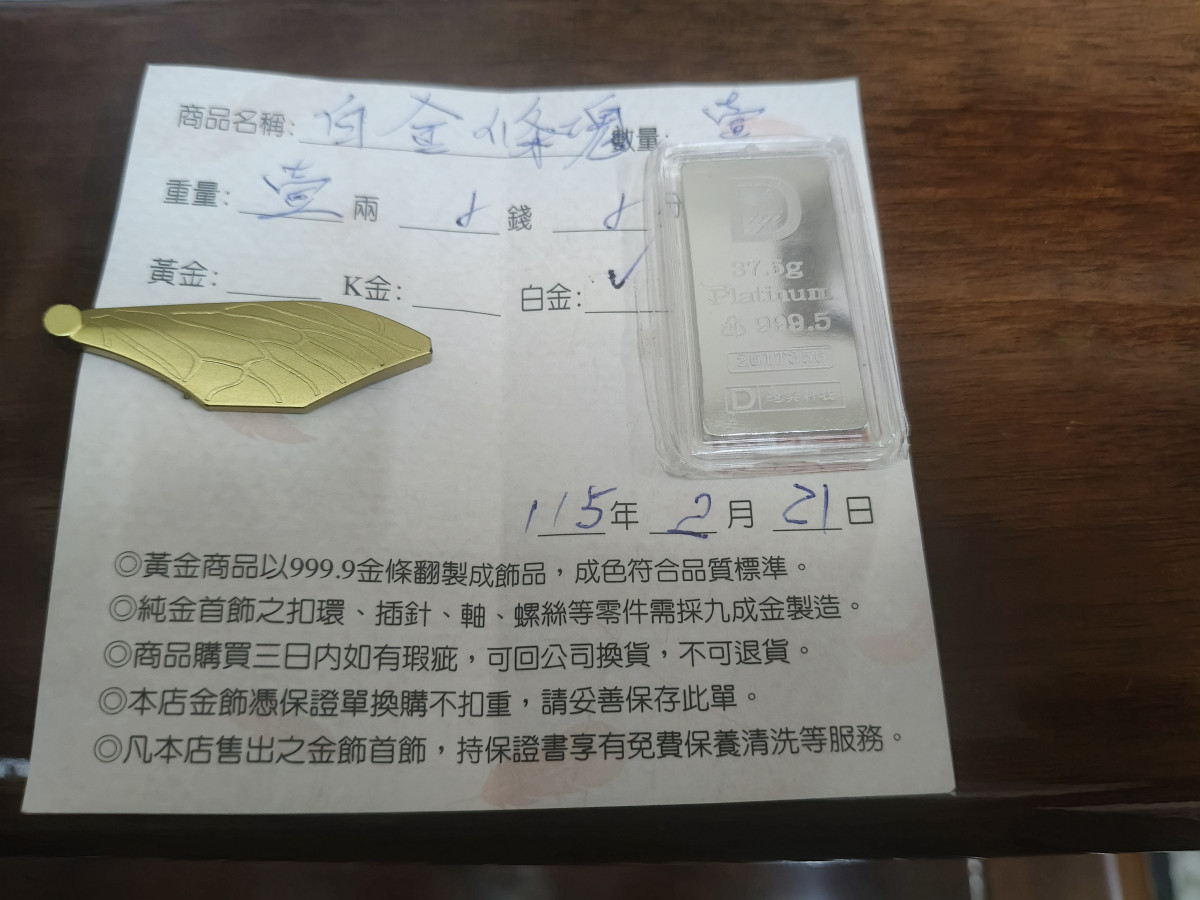 商品名稱: 白金條塊 數量: 壹
重量: 壹 兩 錢
黃金: K金: 白金: ✓
D
37.5g
Platinum
999.5
D
115年 2月 21日
◎黃金商品以999.9金條翻製成飾品，成色符合品質標準。
◎純金首飾之扣環、插針、軸、螺絲等零件需採九成金製造。
◎商品購買三日內如有瑕疵，可回公司換貨，不可退貨。
◎本店金飾憑保證單換購不扣重，請妥善保存此單。
◎凡本店售出之金飾首飾，持保證書享有免費保養清洗等服務。